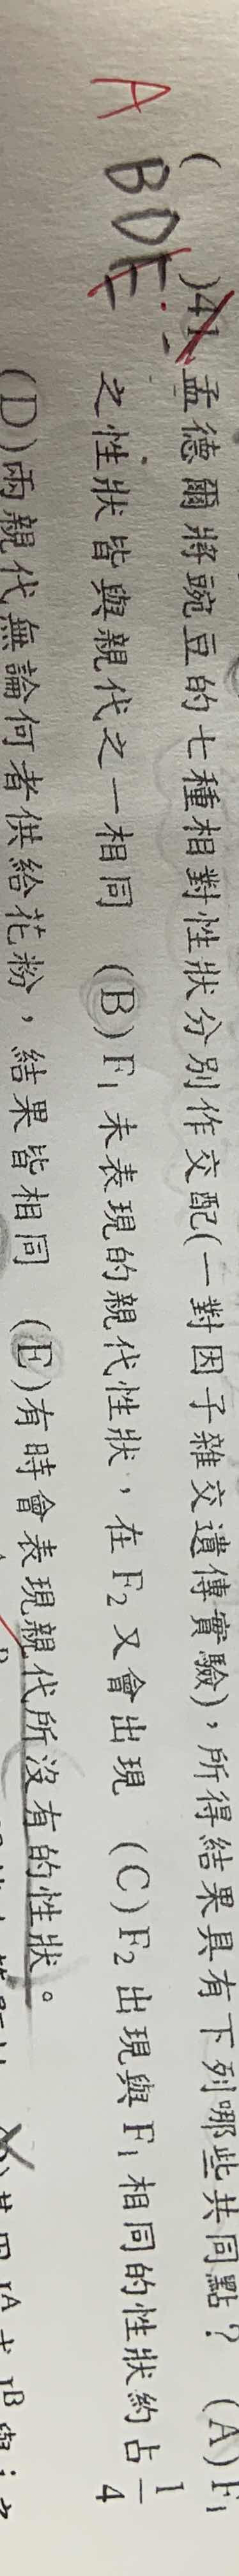 A
BDE
( )41.孟德爾將豌豆的七種相對性狀分別作交配(一對因子雜交遺傳實驗)，所得結果具有下列哪些共同點？ (A)F₁
之性狀皆與親代之一相同 (B)F₁未表現的親代性狀，在F₂又會出現 (C)F₂出現與F₁相同的性狀約占1/4
(D)兩親代無論何者供給花粉，結果皆相同 (E)有時會表現親代所沒有的性狀。